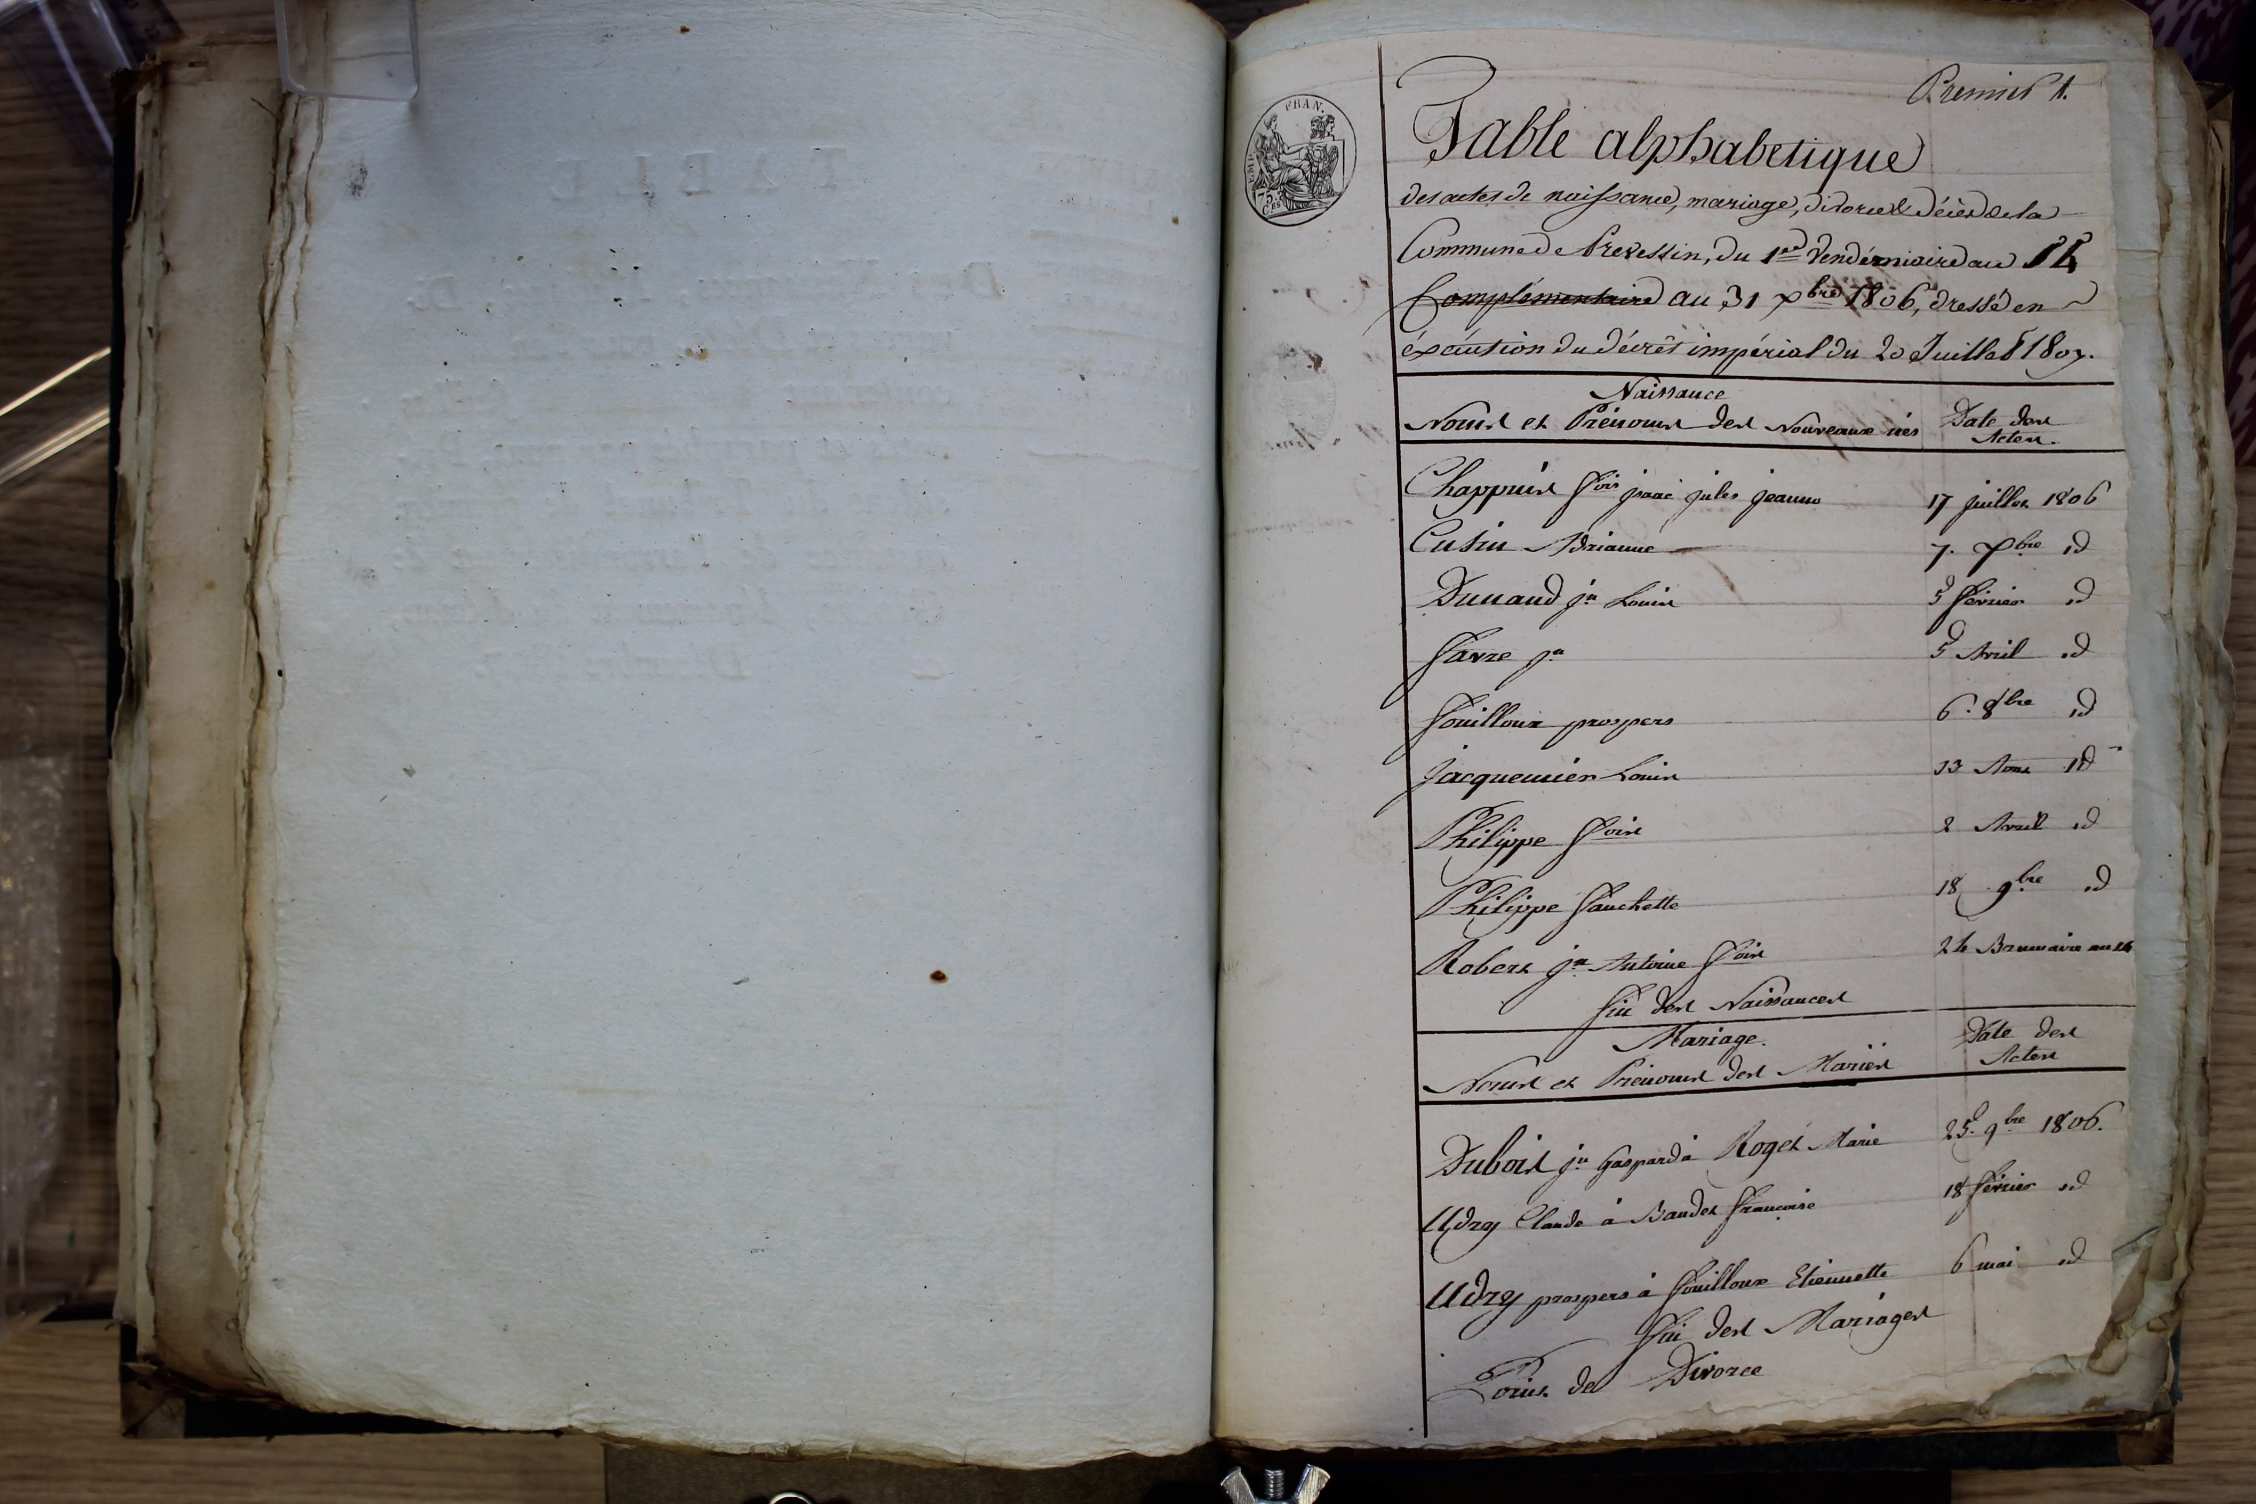 Premier 1.
EMP. FRAN.
75 Ces
Table alphabetique
des actes de naissance, mariage, divorce & décès de la
Commune de Prevessin, du 1er Vendémiaire an 14
Complémentaire au 31 xbre 1806, dressé en
éxécution du décrêt impérial du 20 Juillet 1807.
Naissance
Noms et Prénoms des Nouveaux nés
Date des
Actes.
Chappuis fois isaac jules jeanne 17 juillet 1806
Cusin Adrianne 7. xbre id
Dunand jn Louis 5 février id
Favre jn 5 Avril id
Fouilloux prospers 6. 8bre id
Jacquemier Louis 13 Aout id
Philippe fois 2 Avril id
Philippe fanchette 18 9bre id
Robert jn Antoine fois 24 Brumaire an 14
fin des Naissances
Mariage.
Noms et Prénoms des Mariés
Date des
Actes
Dubois jn Gaspard à Roget Marie 25. 9bre 1806.
Udry Claude à Baudet françoise 18 février id
Udry prospers à fouilloux Etiennette 6 mai id
fin des Mariages
Point de Divorce